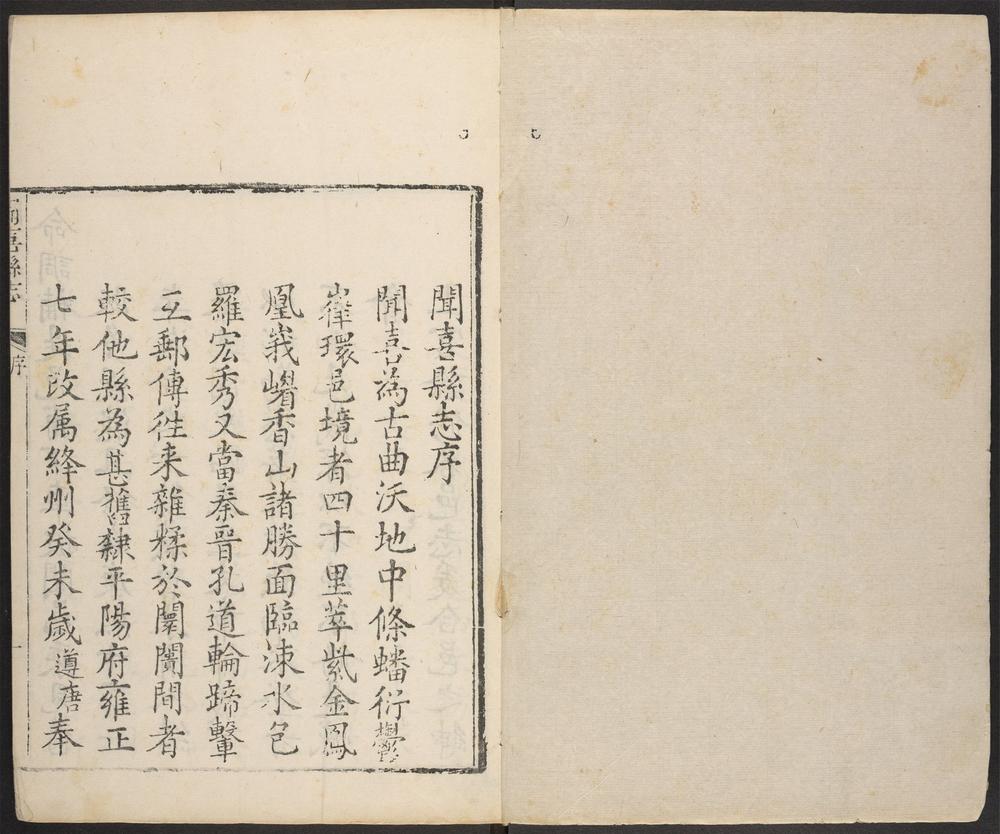 聞喜縣志序
聞喜為古曲沃地中條蟠衍鬱
嵂環邑境者四十里萃紫金鳳
凰峩嵋香山諸勝面臨涑水包
羅宏秀又當秦晉孔道輪蹄轚
互郵傳徃来雜糅於闤闠間者
較他縣為甚舊隸平陽府雍正
七年改属絳州癸未歳遵唐奉
聞喜縣志
序
一